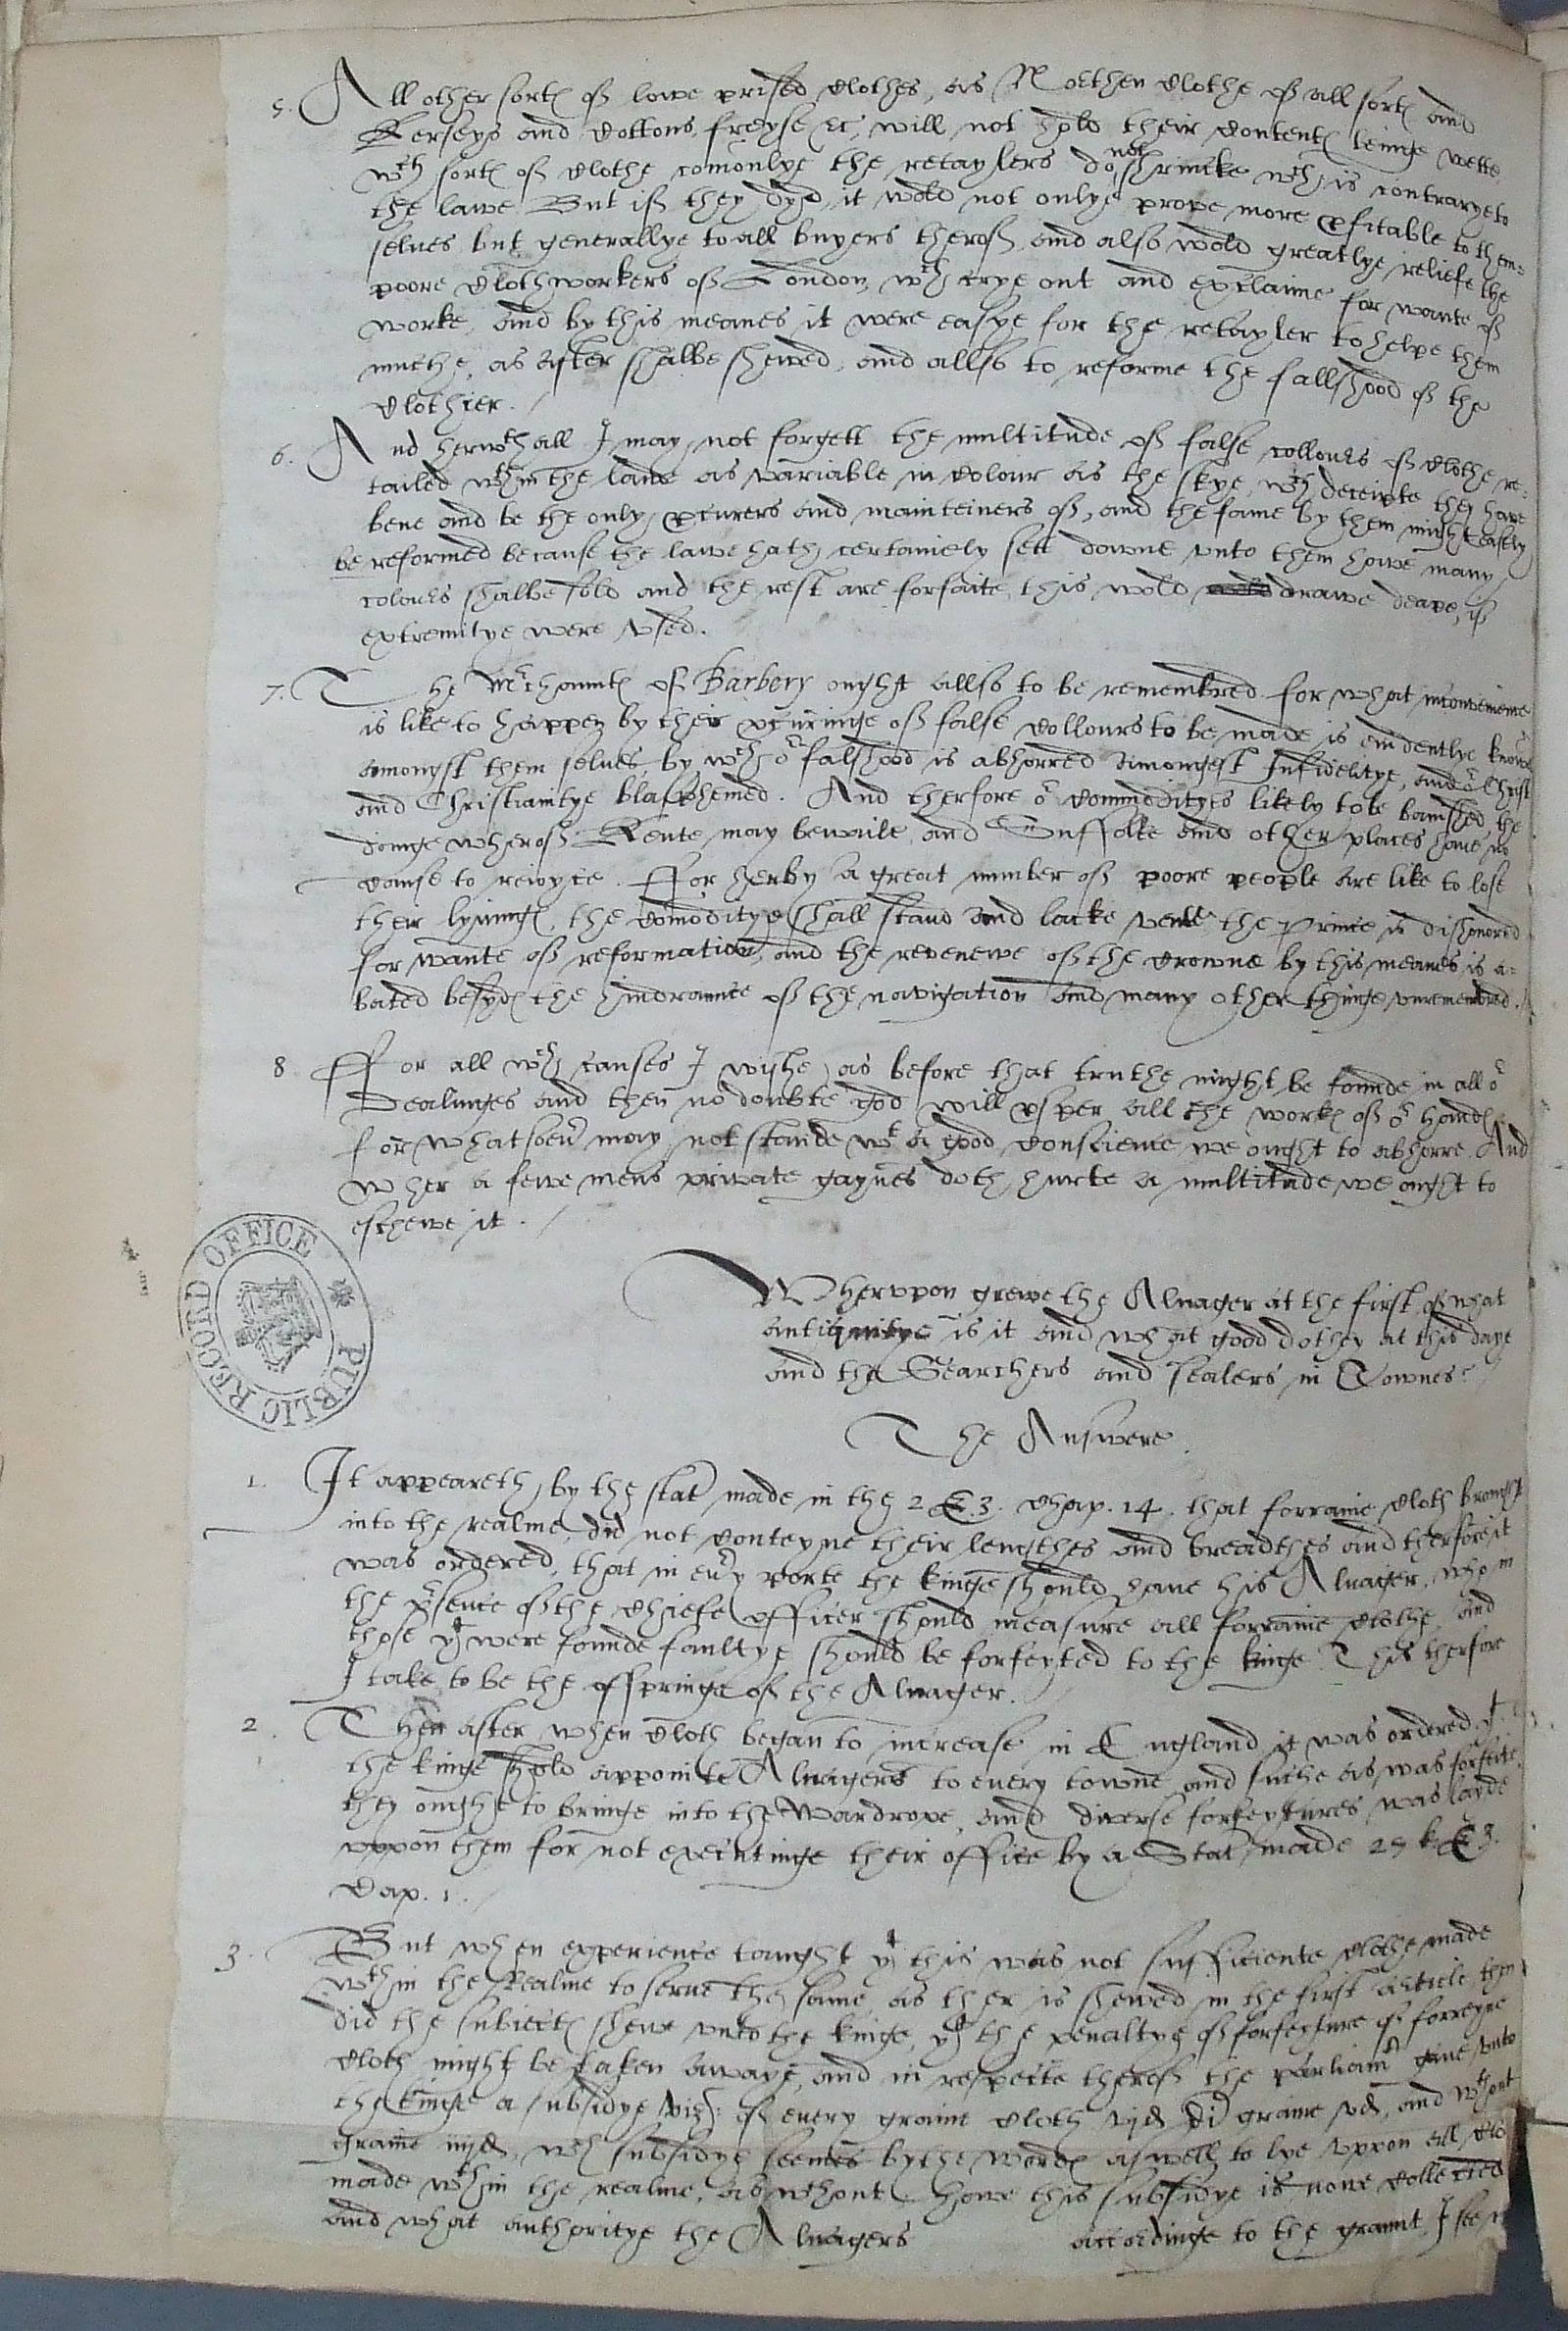 5. All other sort(es) of lowe prised Clothes, as Northen Clothe of all sort(es) and
Kerseys and Cottons, freyse &c, will not hold their Content(es) beinge wette
wch sort(es) of Clothe comonlye the retaylers do not shrincke wch is contrarye to
the lawe. But if they dyd, it wold not onlye prove more pfitable to them=
selves but generallye to all buyers therof and also wold greatlye reliefe the
poore Clothworkers of London, wch crye out and exclaime for wante of
worke, And by this meanes it were easye for the retayler to helpe them
muche, as after shalbe shewed, and allso to reforme the fallshood of the
Clothier.
6. And herwthall I may not forgett the multitude of false collours of Clothe re=
tailed wthin the lande as variable in Colour as the skye, wch deceipte they have
bene and be the only pcurers and mainteiners of, and the same by them might easely
be reformed because the lawe hath certainely sett downe unto them howe many
colours shalbe sold and the rest are forfaite, this wold drawe deape, if
extremitye were used.
7. The Mrchaunt(es) of Barbery ought allso to be remembred for what inconvenience
is like to happen by their pcuringe of false Collours to be made is evidentlye knowen
amongst them selves, by wch or falshood is abhorred Amongest Infidelitye, and or Christ
and Christianitye blasphemed. And therfore or Commodityes likely to be banished, the
doinge wherof Kente may bewaile, and Suffolke and other places have no
Cause to rejoyce. For herby a great number of poore people are like to lose
their lyving(es), the Comoditye shall stand and lacke vente, the Prince is dishonored
for wante of reformation, and the revenewe of the Crowne by this meanes is a=
bated besyd(es) the hindraunce of the navigation and many other thinge unremembred.
8 For all wch causes I wishe, as before that truthe might be founde in all or
Dealinges and then no doubte god will psper all the work(es) of or hand(es)
for whatsoevr may not stande wt a good Conscience we ought to abhorre. And
wher a fewe mens private gaynes doth hurte a multitude we ought to
eschewe it.
PUBLIC RECORD OFFICE
Wheruppon grewe the Alnager at the first, of what
antiquitye is it and what good dothey at this daye
and the Searchers and sealers in Townes?
The Answere.
1. It appeareth by the stat made in the 2 E. 3. Chap. 14. that forraine Cloth brought
into the realme, did not Conteyne their lengthes and breadthes and therfore it
was ordered, that in evry porte the kinge should have his Alnager, who in
the psence of the Chiefe officer should measure all forraine Clothe, and
those yt were founde faultye should be forfeyted to the kinge. This therfore
I take to be the ofspringe of the Alnager.
2. Then after when Cloth began to increase in England it was ordered yt
the kinge shold appointe Alnagers to every towne and suche as was forfeite,
they ought to bringe into the Wardrope, and diverse forfeytures was layde
uppon them for not executinge their office by a Stat made 25 k E 3.
Cap. 1.
3. But when experience taught yt this was not sufficiente Clothe made
wthin the Realme to serve the same, as ther is shewed in the first article, then
did the subject(es) shewe unto the kinge, yt the penaltye of forfeyture of forreyne
Cloth might be taken awaye, and in respecte therof the parliamt gave unto
the kinge a subsidye viz: of every graine Cloth vjd di graine vd, and wthout
graine iiijd, wch subsidye seemes by the word(es) aswell to lye uppon all Clo
made wthin the realme, as wthout. Howe this subsidye is nowe Collected
and what authoritye the Alnagers accordinge to the graunt, I see